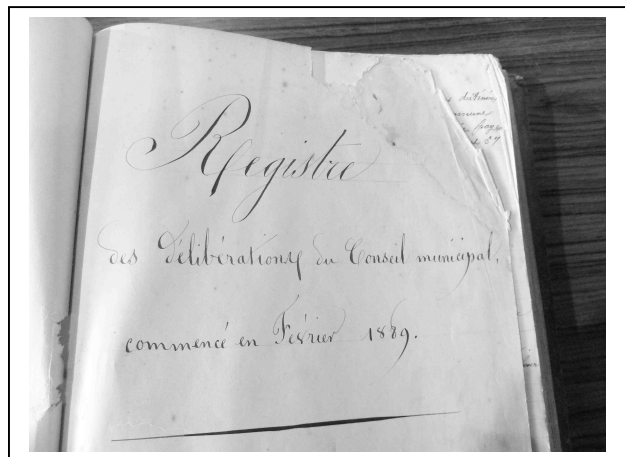 Registre
des Délibérations du Conseil municipal.
commencé en Février 1889.